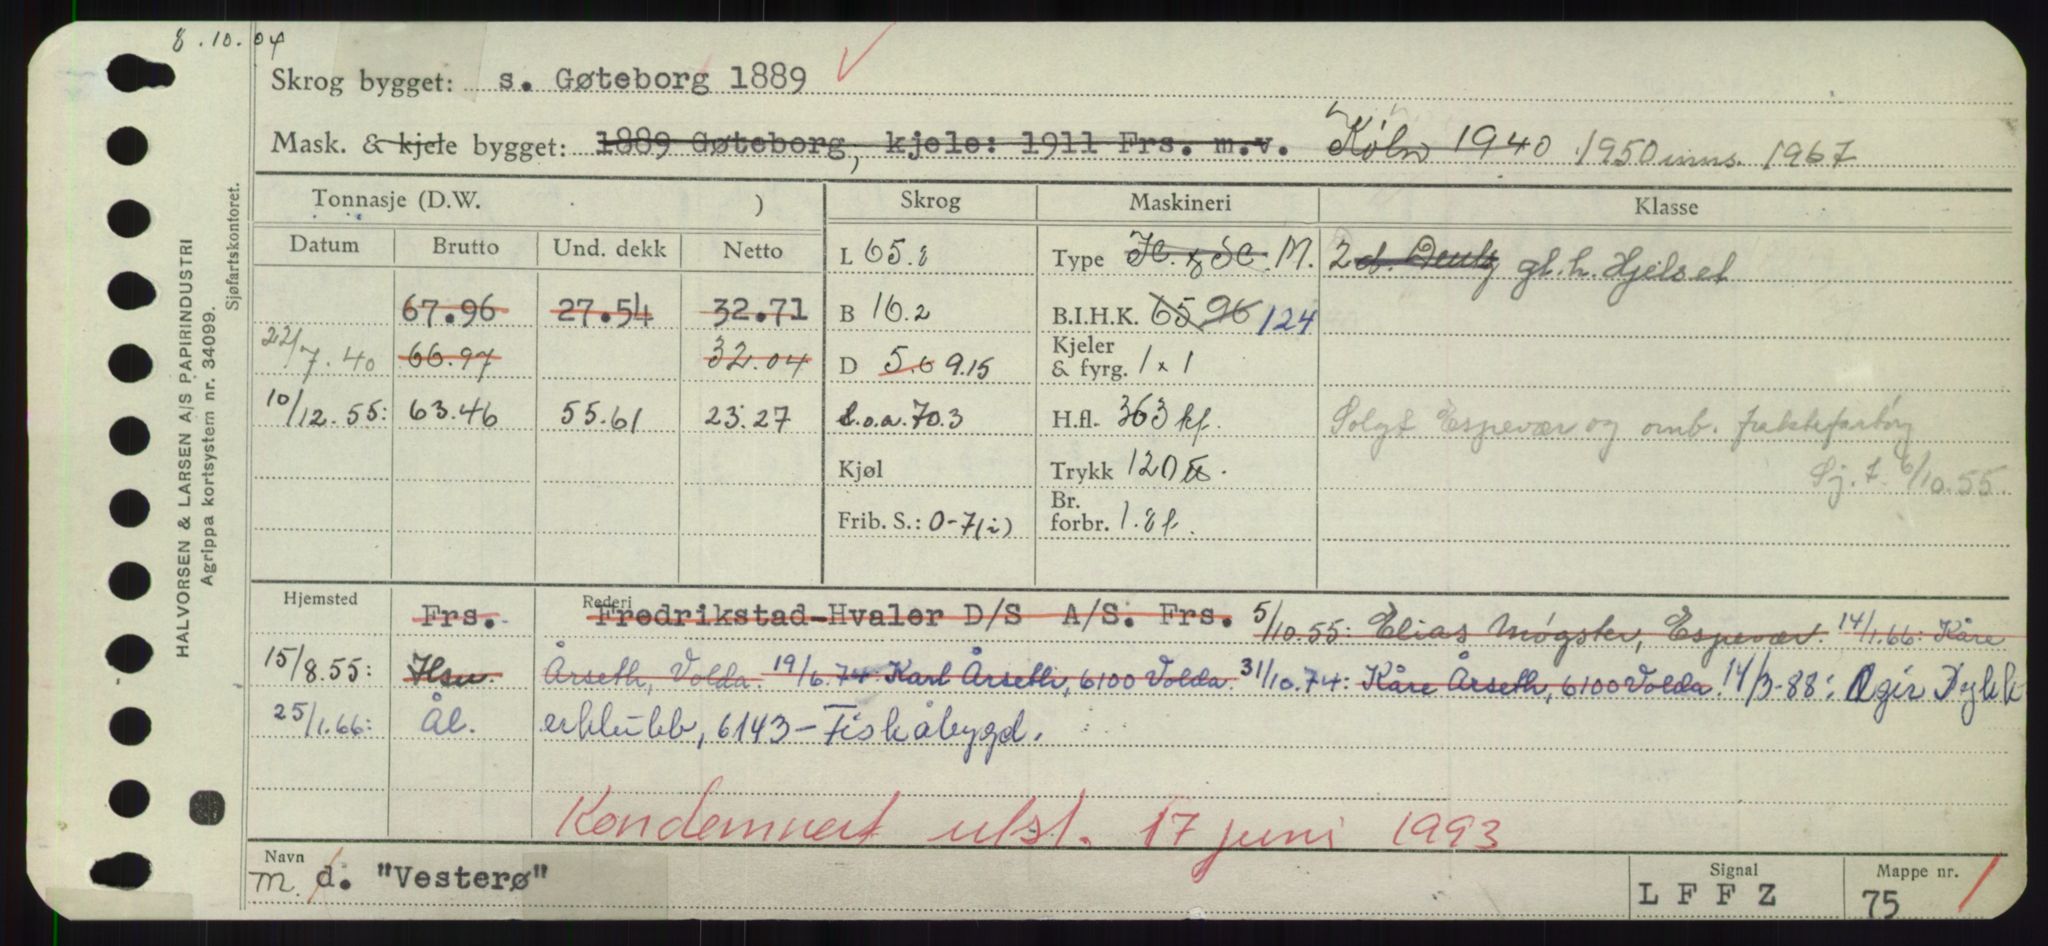 8.10.04
Skrog bygget: s. Gøteborg 1889
Mask. & kjele bygget: 1889 Gøteborg, kjele: 1911 Frs. m.v. Köln 1940 1950 1967
Tonnasje (D.W. ) Skrog Maskineri Klasse
Datum Brutto Und. dekk Netto
L 65.8 Type M. gl. h. Hjelset
67.96 27.54 32.71 B 16.2 B.I.H.K. 65 96 124
22/7.40 66.97 32.04 D 5.6 9.15 Kjeler & fyrg. 1 x 1
10/12.55: 63.46 55.61 23.27 L.o.a. 70.3 H.fl. 363 kf. Solgt Espevær og omb.
Kjøl Trykk 120 Sj. t. 6/10.55.
Frib. S.: 0-7(i) Br. forbr. 1.8 t.
Hjemsted Rederi
Frs. Fredrikstad-Hvaler D/S A/S. Frs. 5/10.55: Elias Møgster, Espevær. 14/1.66: Kåre
15/8.55: Hsu. Årseth, Volda. 19/6.74 Karl Årseth, 6100 Volda. 31/10.74: Kåre Årseth, 6100 Volda. 14/3-88: Ægir Dykk
25/1.66: Ål. erklubb, 6143-Fiskåbygd.
Kondemnert utsl. 17 juni 1993
Navn Signal Mappe nr.
m. d. "Vesterø" L F F Z 75
HALVORSEN & LARSEN A/S PAPIRINDUSTRI
Agrippa kortsystem nr. 34099.
Sjøfartskontoret.